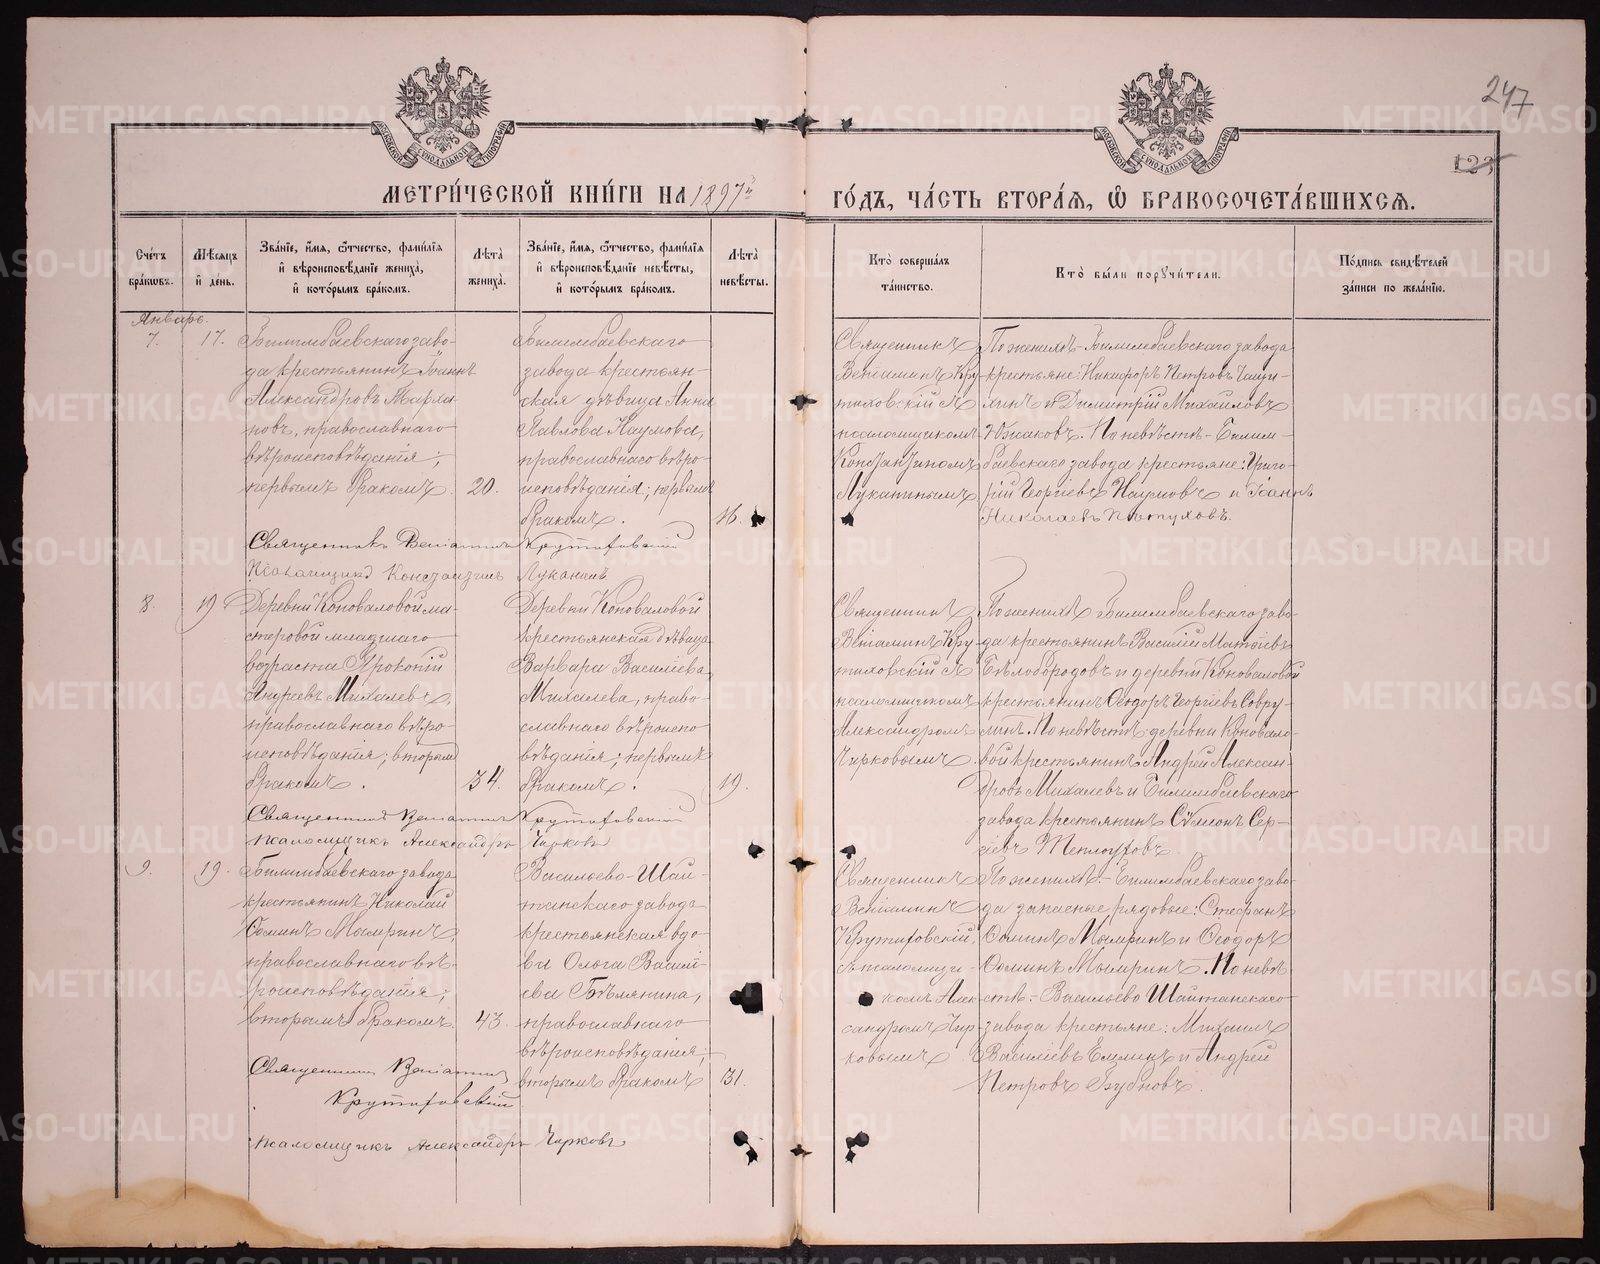 247
123
МОСКОВСКОЙ СѴНОДАЛЬНОЙ ТИПОГРАФІИ
МОСКОВСКОЙ СѴНОДАЛЬНОЙ ТИПОГРАФІИ
МЕТРИ́ЧЕСКОЙ КНИ́ГИ НА 1897й
ГО́ДЪ, ЧА́СТЬ ВТОРА́Я, Ѽ БРАКОСОЧЕТА́ВШИХСЯ.
Сче́тъ бра́кωвъ.
Мѣ́сяцъ и҆ де́нь.
Зва́нїе, и҆́мя, ѻ҆́тчество, фами́лїя и҆ вѣроисповѣ́данїе жениха̀, и҆ кото́рымъ бра́комъ.
Лѣ́та жениха̀.
Зва́нїе, и҆́мя, ѻ҆́тчество, фами́лїя и҆ вѣроисповѣ́данїе невѣ́сты, и҆ кото́рымъ бра́комъ.
Лѣ́та невѣ́сты.
Кто̀ соверша́лъ та́инство.
Кто̀ бы́ли порꙋчи́тели.
По́дпись свидѣ́телей за́писи по жела́нїю.
Январь.
7.
17.
Билимбаевскаго заво-
да крестьянинъ Іоаннъ
Александровъ
православнаго
вѣроисповѣданія;
первымъ бракомъ.
20.
Билимбаевскаго
завода крестьян-
ская дѣвица Анна
Павлова Наумова,
православнаго вѣро-
исповѣданія; первымъ
бракомъ.
16.
Священникъ
Веніаминъ Кру-
тиховскій съ
псаломщикомъ
Константиномъ
Луканинымъ
По женихѣ - Билимбаевскаго завода
крестьяне: Никифоръ Петровъ
и Димитрій Михайловъ
Южаковъ. По невѣстѣ - Билим-
баевскаго завода крестьяне: Григо-
рій Георгіевъ Наумовъ и Іоаннъ
Николаевъ Пѣтуховъ.
Священникъ Веніаминъ Крутиховский
Псаломщикъ Константинъ Луканинъ
8.
19
Деревни Коноваловой ма-
стеровой младшаго
возраста Прокопій
Андреевъ Михалевъ,
православнаго вѣро-
исповѣданія; вторымъ
бракомъ.
34.
Деревни Коноваловой
крестьянская дѣвица
Варвара Василіева
Михалева, право-
славнаго вѣроиспо-
вѣданія; первымъ
бракомъ.
19.
Священникъ
Веніаминъ Кру-
тиховскій съ
псаломщикомъ
Александромъ
Чирковымъ.
По женихѣ Билимбаевскаго заво-
да крестьянинъ Василій Матѳіевъ
Бѣлобородовъ и деревни Коноваловой
крестьянинъ Ѳеодоръ Георгіевъ Совру-
линъ. По невѣстѣ - деревни Коновало-
вой крестьянинъ Андрей Алексан-
дровъ Михалевъ и Билимбаевскаго
завода крестьянинъ Сѵмеонъ Сер-
гіевъ Теплоуховъ.
Священникъ Веніаминъ Крутиховский
псаломщикъ Александръ Чирковъ
9.
19.
Билимбаевскаго завода
крестьянинъ Николай
Ѳоминъ Мымринъ,
православнаго вѣ-
роисповѣданія;
вторымъ бракомъ.
43.
Васильево-Шай-
танскаго завода
крестьянская вдо-
ва Ольга Василі-
ева Бѣлянина,
православнаго
вѣроисповѣданія;
вторымъ бракомъ
31.
Священникъ
Веніаминъ
Крутиховскій,
съ псаломщи-
комъ Алек-
сандромъ Чир-
ковымъ
По женихѣ - Билимбаевскаго заво-
да запасные рядовые: Стефанъ
Ѳоминъ Мымринъ и Ѳеодоръ
Ѳоминъ Мымринъ. По невѣ-
стѣ - Васильево Шайтанскаго
завода крестьяне: Михаилъ
Василіевъ Емлинъ и Андрей
Петровъ Бубновъ.
Священникъ Веніаминъ
Крутиховский
псаломщикъ Александръ Чирковъ
METRIKI.GASO-URAL.RU